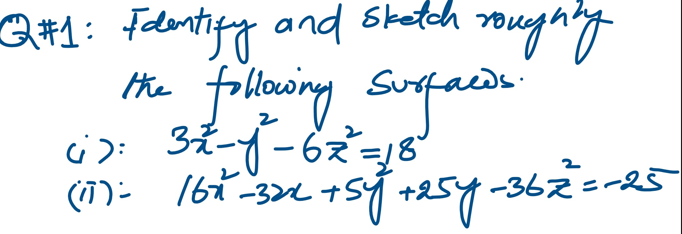 Q#1: Identify and sketch roughly
the following surfaces.
(i): 3x²-y²-6z²=18
(ii):- 16x²-32x+5y²+25y-36z²=-25